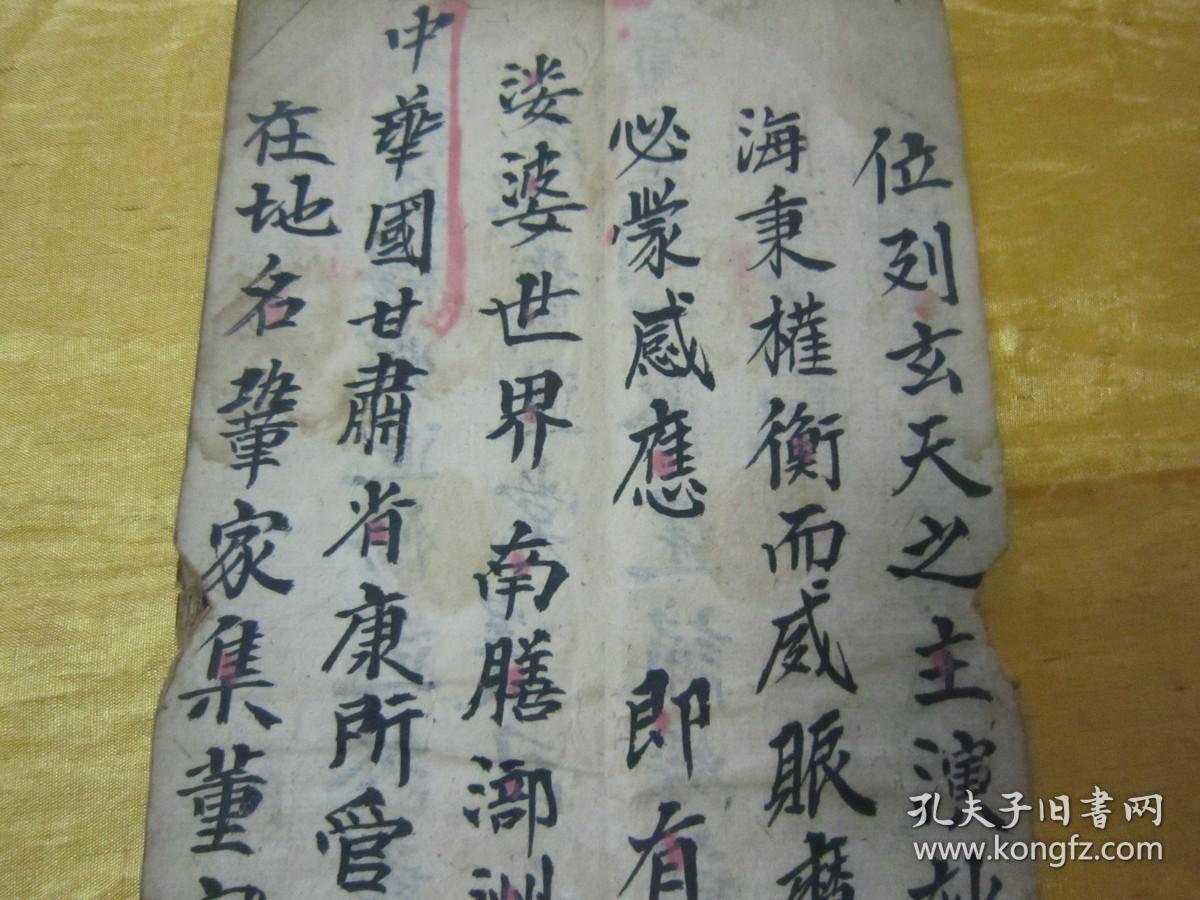 位列玄天之主演
海秉權衡而威賑
必蒙感應 即有
溇婆世界 南膳洲
中華國甘肅省康所管
在地名鞏家集董
孔夫子旧书网
www.kongfz.com